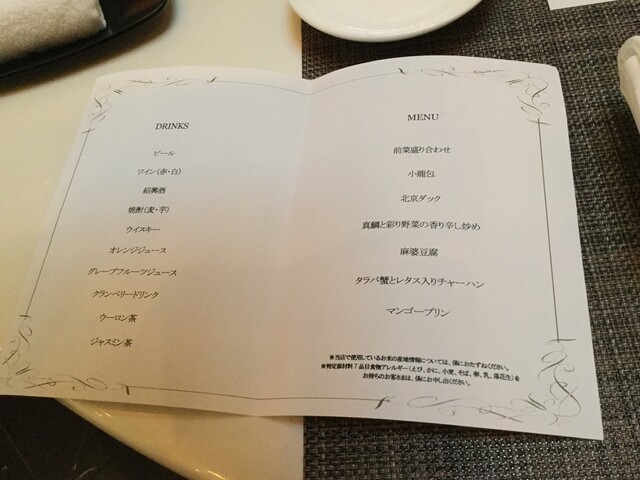 DRINKS
ビール
ワイン（赤・白）
紹興酒
焼酎（麦・芋）
ウイスキー
オレンジジュース
グレープフルーツジュース
クランベリードリンク
ウーロン茶
ジャスミン茶
MENU
前菜盛り合わせ
小籠包
北京ダック
真鯛と彩り野菜の香り辛し炒め
麻婆豆腐
タラバ蟹とレタス入りチャーハン
マンゴープリン
※当店で使用しているお米の産地情報については、係におたずねください。
※特定原材料7品目食物アレルギー（えび、かに、小麦、そば、卵、乳、落花生）を
お持ちのお客さまは、係にお申し出ください。